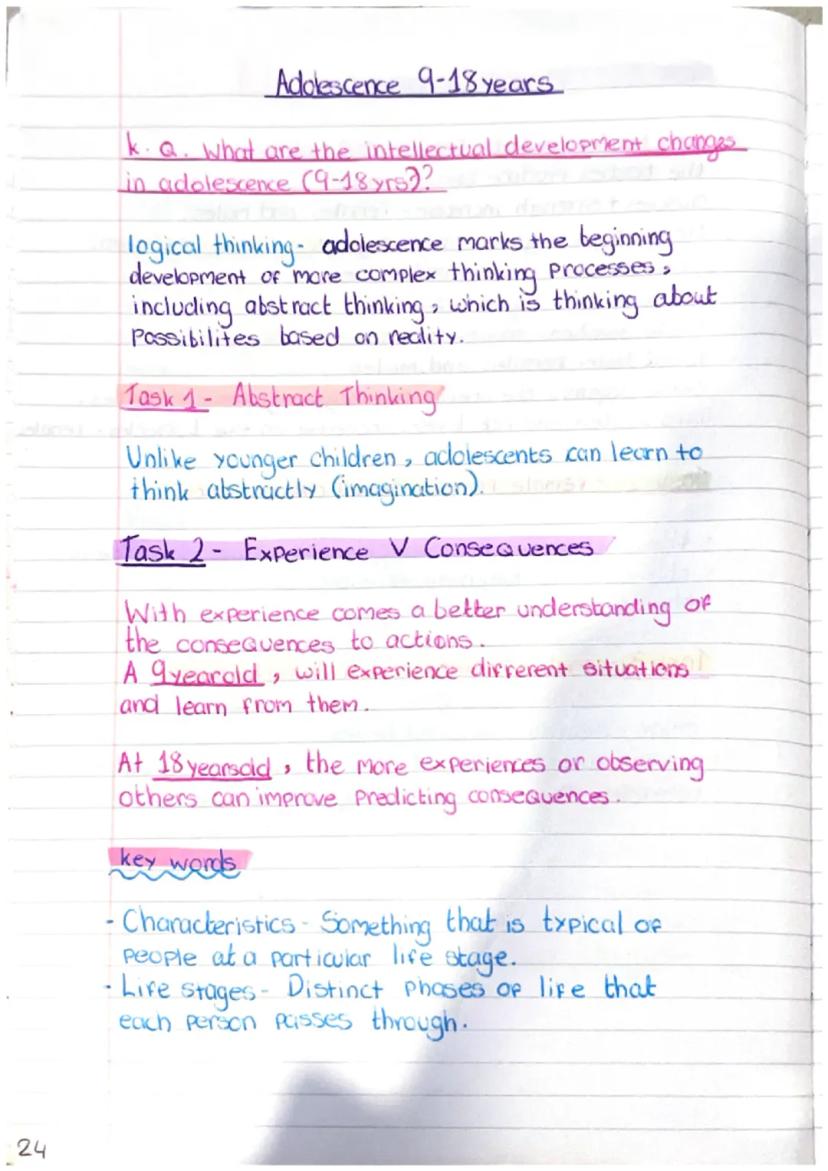 Adolescence 9-18 years
K. Q. What are the intellectual development changes
in adolescence (9-18 yrs)?
logical thinking - adolescence marks the beginning
development of more complex thinking processes,
including abstract thinking, which is thinking about
Possibilites based on reality.
Task 1 - Abstract Thinking
Unlike younger children, adolescents can learn to
think abstractly (imagination).
Task 2 - Experience V Consequences
With experience comes a better understanding of
the consequences to actions.
A 9 year old, will experience different situations
and learn from them.
At 18 years old, the more experiences or observing
others can improve predicting consequences.
key words
- Characteristics - Something that is typical of
people at a particular life stage.
- Life stages - Distinct phases of life that
each person passes through.
24